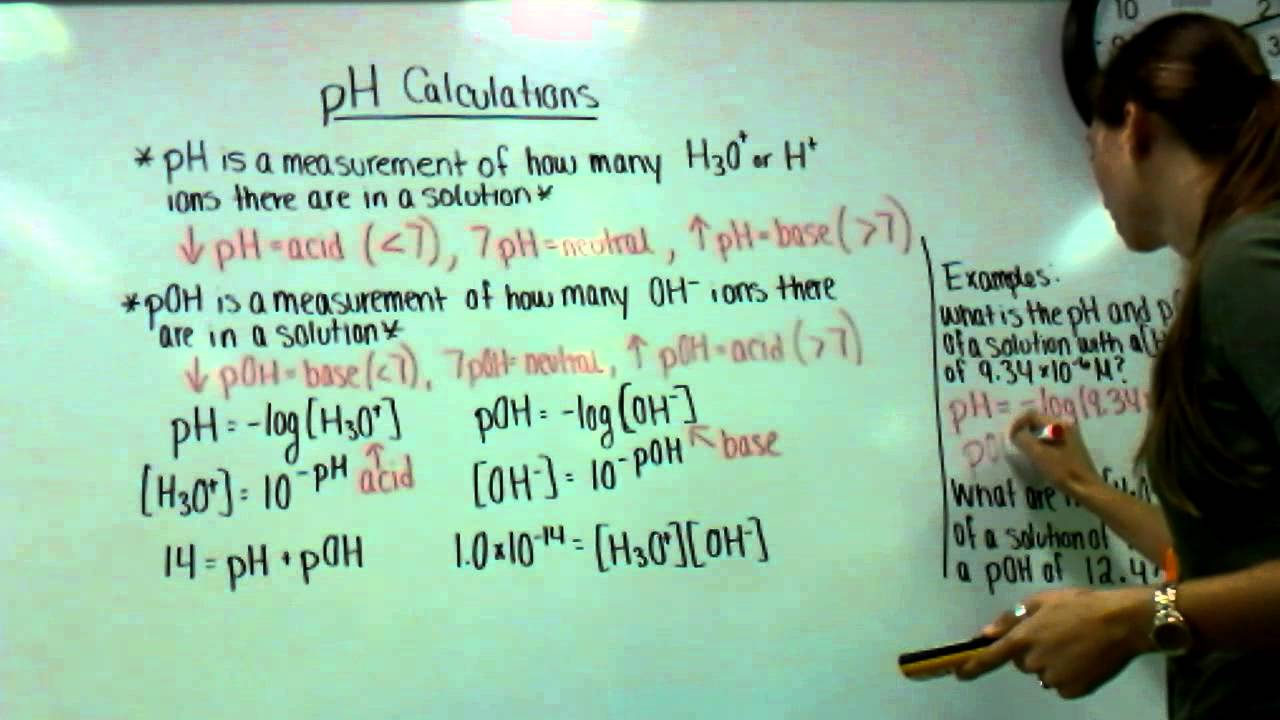 pH Calculations
*pH is a measurement of how many H₃O⁺ or H⁺
ions there are in a solution*
↓ pH=acid (<7), 7pH=neutral, ↑ pH=base(>7)
*pOH is a measurement of how many OH⁻ ions there
are in a solution*
↓ pOH=base(<7), 7pOH=neutral, ↑ pOH=acid(>7)
pH = -log[H₃O⁺] pOH = -log[OH⁻]
[H₃O⁺] = 10^-pH acid [OH⁻] = 10^-pOH base
14 = pH + pOH 1.0×10⁻¹⁴ = [H₃O⁺][OH⁻]
Examples:
What is the pH and
of a solution with a
of 9.34×10⁻⁶M?
pH = -log(9.34
What are
of a solution of
a pOH of 12.4
10
2
3